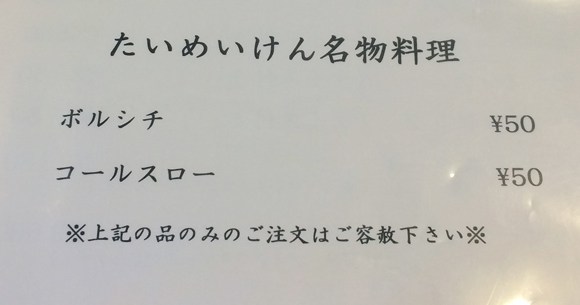 たいめいけん名物料理
ボルシチ ¥50
コールスロー ¥50
※上記の品のみのご注文はご容赦下さい※